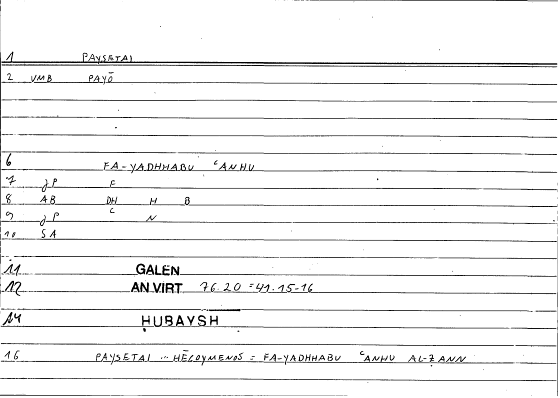 1 PAYSETAI
2 VMB PAYŌ
6 FA-YADHHABU ᶜANHU
7 JP F
8 AB DH H B
9 JP ᶜ N
10 SA
11 GALEN
12 AN VIRT 76.20 = 41.15-16
14 ḤUBAYSH
16 PAYSETAI ... HĒCOYMENOS = FA-YADHHABU ᶜANHU AL-ẒANN